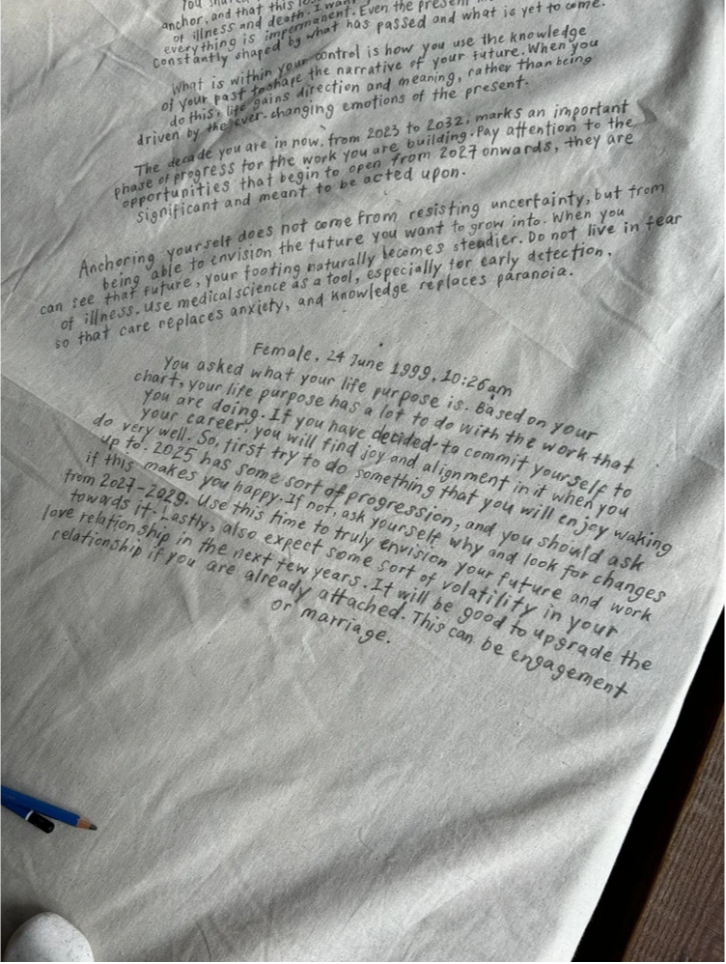 anchor, and that this
of illness and death. I want
everything is impermanent. Even the present
constantly shaped by what has passed and what is yet to come.
What is within your control is how you use the knowledge
of your past to shape the narrative of your future. When you
do this, life gains direction and meaning, rather than being
driven by the ever-changing emotions of the present.
The decade you are in now, from 2023 to 2032, marks an important
phase of progress for the work you are building. Pay attention to the
opportunities that begin to open from 2027 onwards, they are
significant and meant to be acted upon.
Anchoring yourself does not come from resisting uncertainty, but from
being able to envision the future you want to grow into. When you
can see that future, your footing naturally becomes steadier. Do not live in fear
of illness. Use medical science as a tool, especially for early detection,
so that care replaces anxiety, and knowledge replaces paranoia.
Female, 24 June 1999, 10:26am
You asked what your life purpose is. Based on your
chart, your life purpose has a lot to do with the work that
you are doing. If you have decided to commit yourself to
your career, you will find joy and alignment in it when you
do very well. So, first try to do something that you will enjoy waking
up to. 2025 has some sort of progression, and you should ask
if this makes you happy. If not, ask yourself why and look for changes
from 2027-2029. Use this time to truly envision your future and work
towards it. Lastly, also expect some sort of volatility in your
love relationship in the next few years. It will be good to upgrade the
relationship if you are already attached. This can be engagement
or marriage.